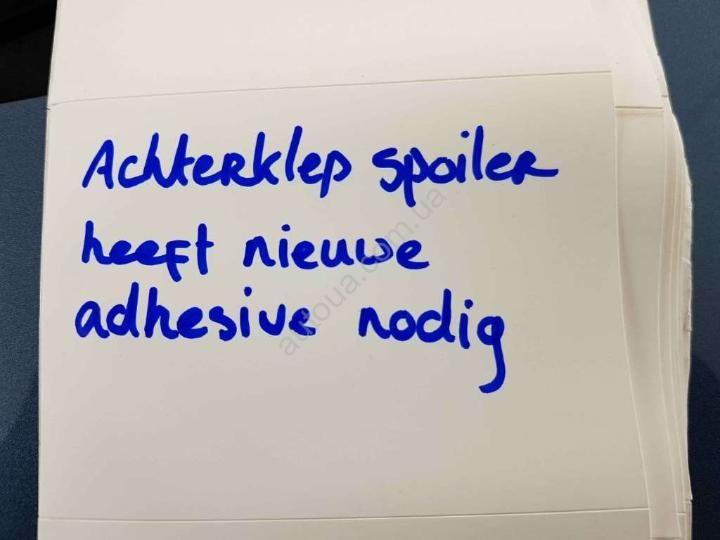 Achterklep spoiler
heeft nieuwe
adhesive nodig
autoua.com.ua